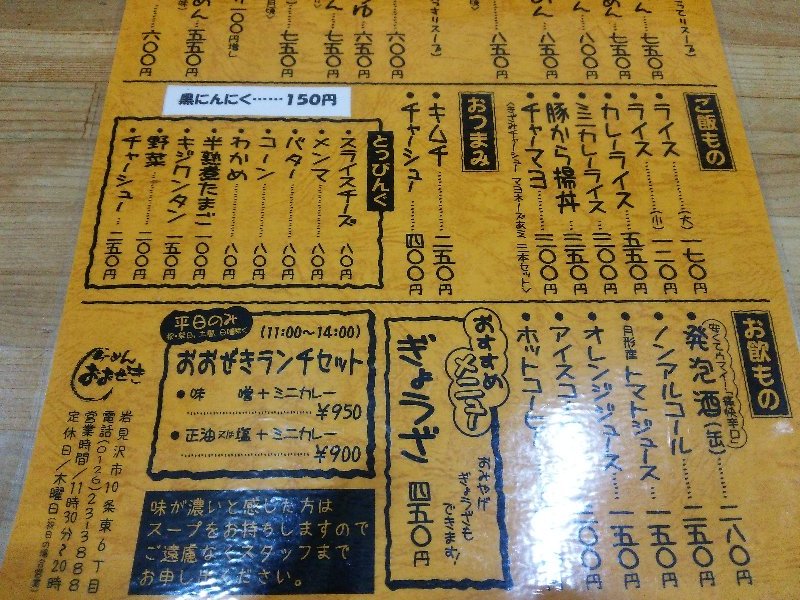 てりスープ)
ん……七五〇円
めん……七五〇円
ん……八〇〇円
ん……八五〇円
ん……八五〇円
きりスープ)
六〇〇円
ゆ……六五〇円
七五〇円
一〇〇円増し
めん……五五〇円
六〇〇円
ご飯もの
・ライス……(大)一七〇円
・ライス……(小)一二〇円
・カレーライス……五五〇円
・ミニカレーライス……三〇〇円
・豚から揚丼……三五〇円
・チャーマヨ……三〇〇円
おつまみ
・キムチ……二五〇円
・チャーシュー……四〇〇円
黒にんにく……150円
とっぴんぐ
・スライスチーズ…八〇円
・メンマ……八〇円
・バター……八〇円
・コーン……八〇円
・わかめ……八〇円
・半熟煮たまご…一〇〇円
・キジワンタン…一五〇円
・野菜……二〇〇円
・チャーシュー…二五〇円
お飲もの
・発泡酒(缶)……二八〇円
・ノンアルコール……二五〇円
月形産トマトジュース……一五〇円
・オレンジジュース……一五〇円
・アイスコ
・ホットコーヒ
〇〇円
おすすめメニュー
ぎょうざ
四五〇円
平日のみ
(11:00〜14:00)
おおぜきランチセット
・味　噌+ミニカレー
……¥950
・正油又は塩+ミニカレー
……¥900
味が濃いと感じた方は
スープをお持ちしますので
ご遠慮なくスタッフまで
お申し下ください。
らーめん
おおぜき
岩見沢市10条東6丁目
電話(0126)23-3888
営業時間/11時30分〜20時
定休日/木曜日(祝日の場合営業)